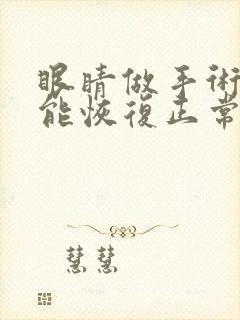 眼睛做手術
能恢復正常
慧慧